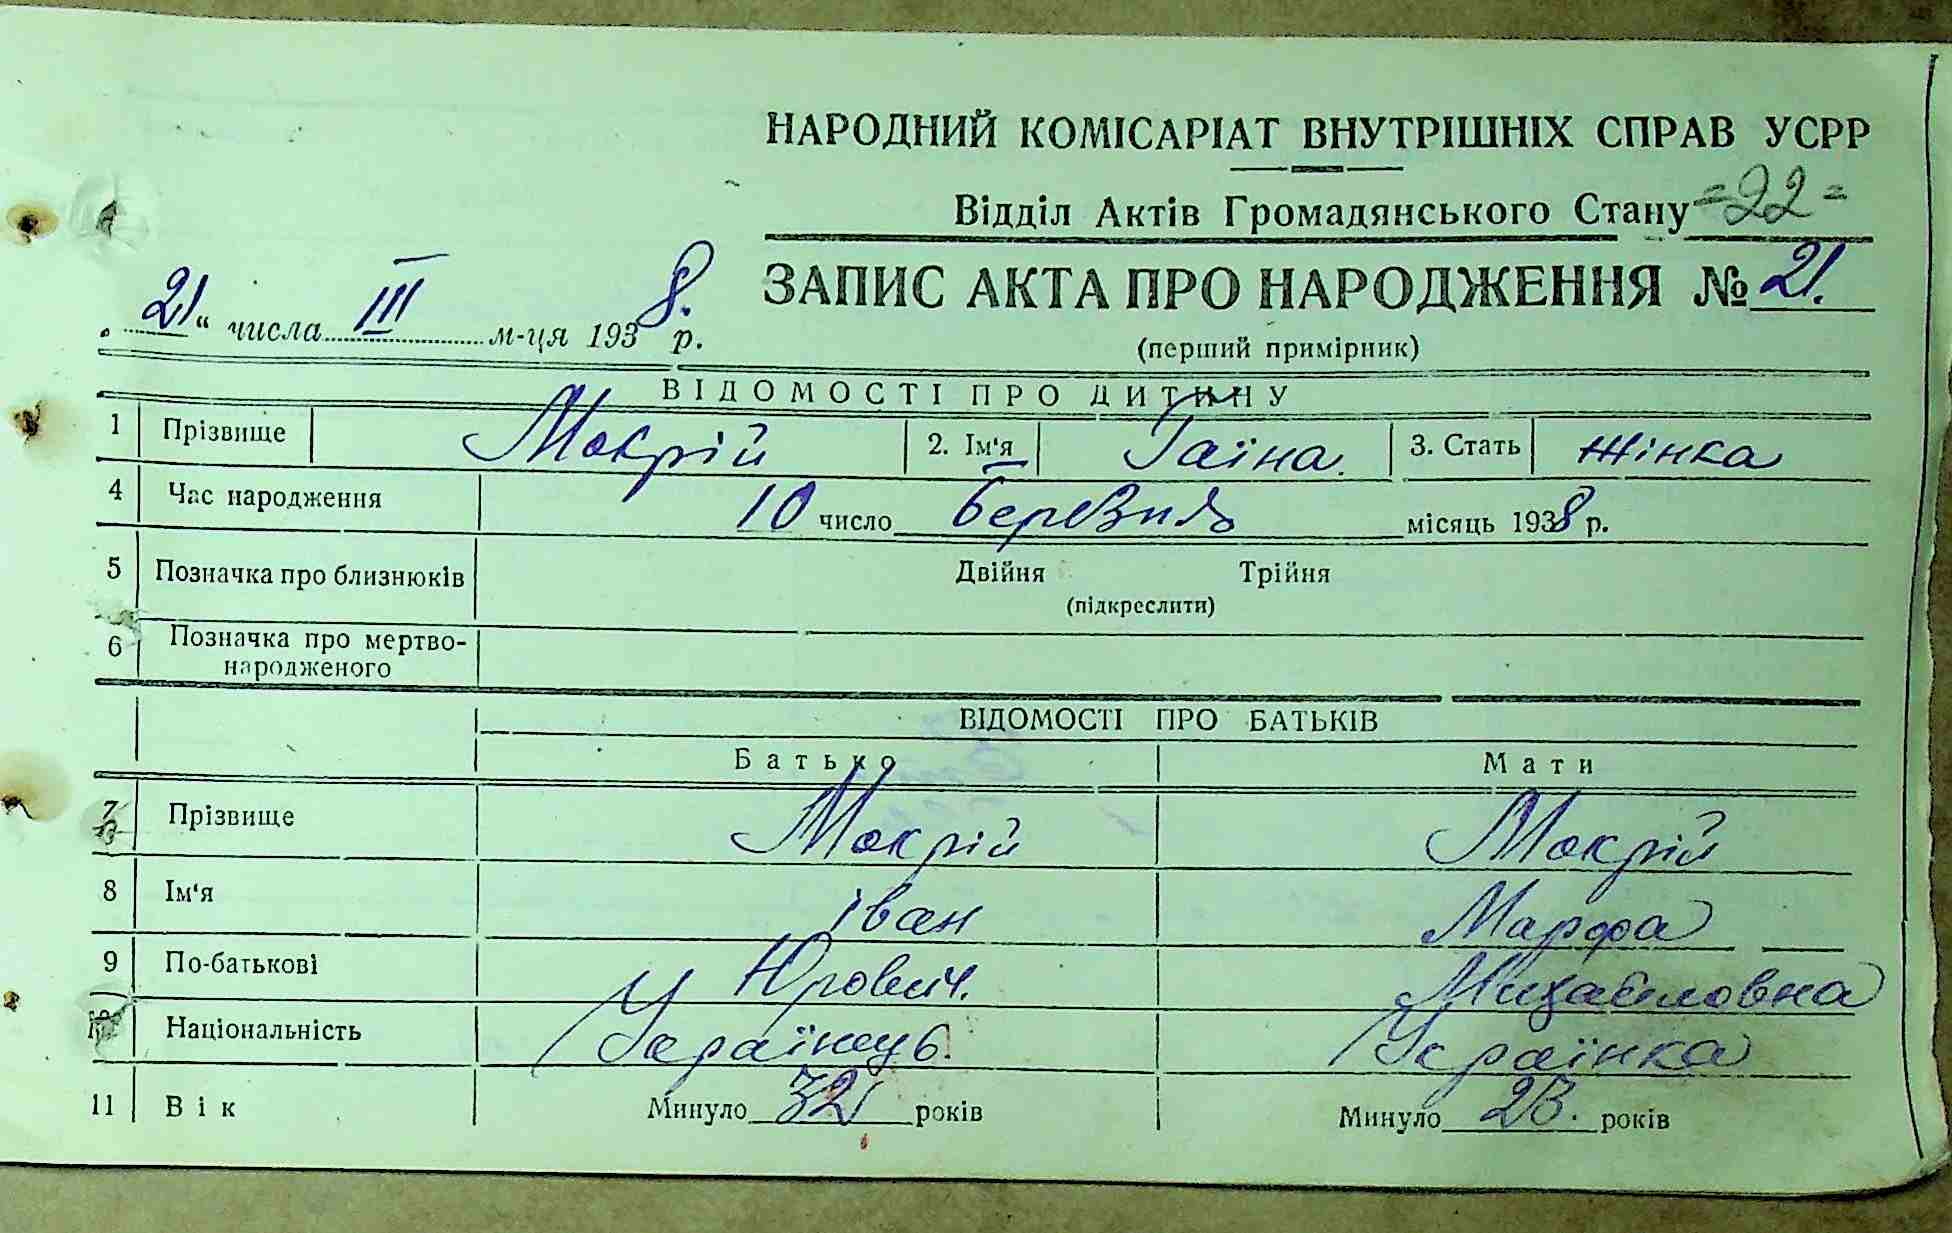 НАРОДНИЙ КОМІСАРІАТ ВНУТРІШНІХ СПРАВ УСРР
Відділ Актів Громадянського Стану =22=
ЗАПИС АКТА ПРО НАРОДЖЕННЯ № 21.
„21“ числа III м-ця 1938 р.
(перший примірник)
ВІДОМОСТІ ПРО ДИТИНУ
1 Прізвище Мокрій 2. Ім'я Гаїна. 3. Стать жінка
4 Час народження 10 число березня місяць 1938 р.
5 Позначка про близнюків Двійня Трійня
(підкреслити)
6 Позначка про мертво-
народженого
ВІДОМОСТІ ПРО БАТЬКІВ
Батько Мати
7 Прізвище Мокрій Мокрій
8 Ім'я Іван Марфа
9 По-батькові Юрович. Михайловна
10 Національність Українець. Українка
11 Вік Минуло 32 років Минуло 23. років